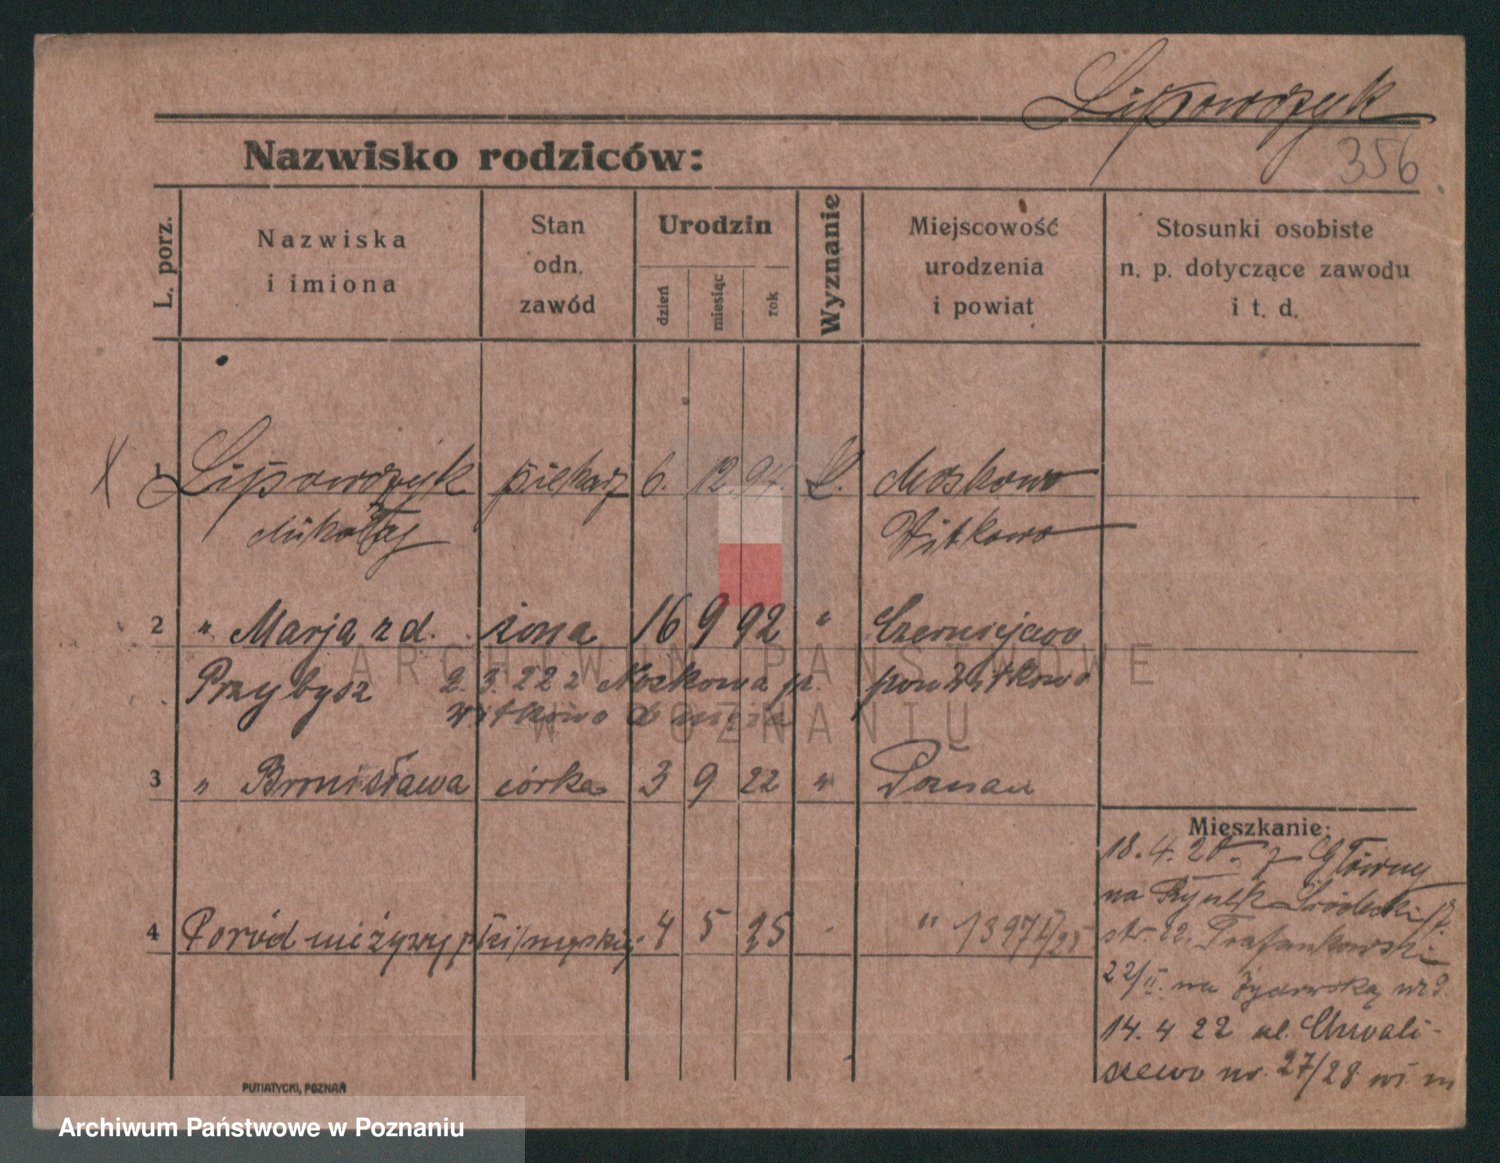 Lipowczyk
356
Nazwisko rodziców:
L. porz.
Nazwiska
i imiona
Stan
odn.
zawód
Urodzin
dzień
miesiąc
rok
Wyznanie
Miejscowość
urodzenia
i powiat
Stosunki osobiste
n. p. dotyczące zawodu
i t. d.
1 Lipowczyk piekarz 6. 12. 94.
Mikołaj Witkowo
2 " Marja z d. żona 16 9 92 "
Przybysz 2. 3. 22 z pow Witkowo
Witkowo do męża
3 " Bronisława córka 3 9 22 " Poznań
4 Poród nieżywy płci męskiej 4 5 25 "
Mieszkanie:
18. 4. z Główny
na Rynek Śródecki
str. 22.
22/II. na Żydowską nr 9.
14. 4 22 ul. Chwali-
szewo nr. 27/28
PUTIATYCKI, POZNAŃ
ARCHIWUM PAŃSTWOWE
W POZNANIU
Archiwum Państwowe w Poznaniu